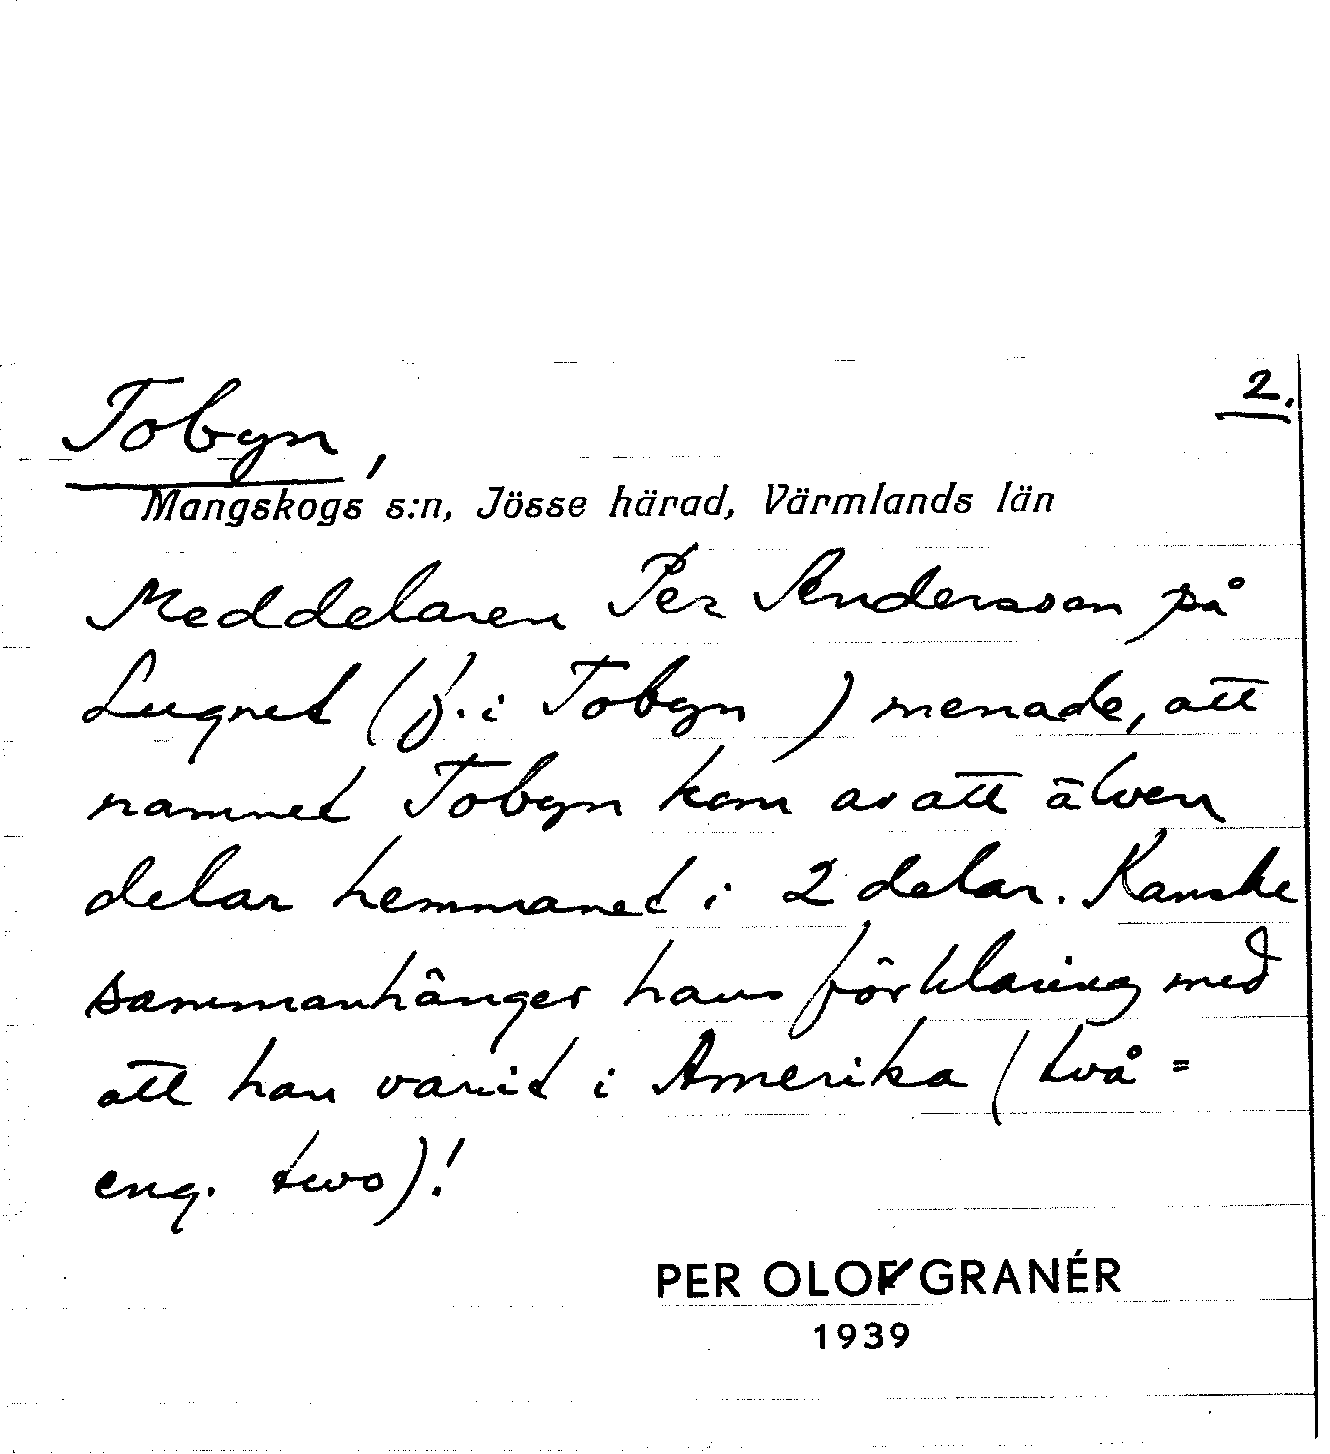 2.
Tobyn,
Mangskogs s:n, Jösse härad, Värmlands län
Meddelaren Per Andersson på
Lugnet (f. i Tobyn ) menade, att
namnet Tobyn kom av att älven
delar hemmanet i 2 delar. Kanske
sammanhänger hans förklaring med
att han varit i Amerika (två =
eng. two)!
PER OLOF GRANÉR
1939